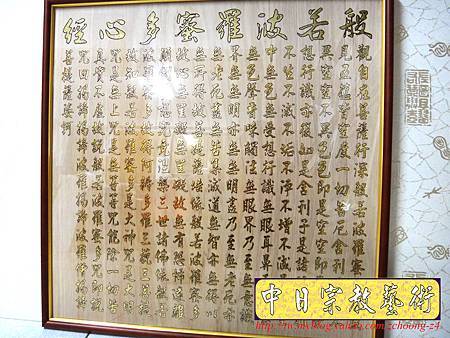 般若波羅蜜多心經
觀自在菩薩行深般若波羅
見五蘊皆空度一切苦厄舍利
異空空不異色色即是空空即是
想行識亦復如是舍利子是諸
不生不滅不垢不淨不增不減
中無色無受想行識無眼耳鼻
無色聲香味觸法無眼界乃至無意識
界無無明亦無無明盡乃至無老死亦
無老死盡無苦集滅道無智亦無得以
無所得故菩提薩埵依般若波羅蜜多
故心無罣礙無罣礙故無有恐怖遠離
顛倒夢想究竟涅槃三世諸佛依般若
波羅蜜多故得阿耨多羅三藐三菩提
故知般若波羅蜜多是大神咒是大明
咒是無上咒是無等等咒能除一切苦
真實不虛故說般若波羅蜜多咒即說
咒曰揭諦揭諦波羅揭諦波羅僧揭諦
菩提薩婆訶
中日宗教藝術